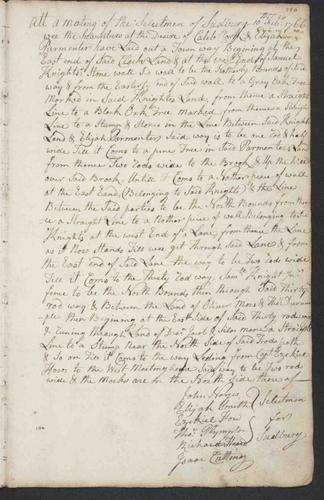 At a meting of the Selectmen of Sudbury Feb
wee the Subscribers at the Desire of Caleb & Elijah
Parmenter have Laid out a Town way Begining at the
East end of Said Land & at the End of Samuel
Knights Stone wall Said wall to be the Bounds of Said
way & from the Easterly End of Said wall to a Gray oak Tree
Marked in Said Knights Land, from thence a Straight
Line to a Black Oak Tree Marked from thence a Straight
Line to a Stump & Stones in the Line Between Said Knights
Land & Elijah Parmenters Said way is to be one Rod & half
wide Till it Coms to a pine Tree in Said Parmenters Land
from thence Two Rods wide to the Brook &
over Said Brook Untill it Coms to a Nother piece of wall
at the East End, Belonging to Said Knights & the Line
Between the Said parties to be the North Bounds from thence
a Straight Line to a Nother piece of wall Belonging to Sd
Knights at the west End of a Lane, from thence the Line
as it Now Stands Till wee get Through Said Lane & from
the East End of Said Lane the way to be Two Rods wide
Till it Coms to the Thirty Rod way, Saml Knights
fence to be the North Bounds then through Said Thirty
rod way & Between the Land of Oliver &
then Begining at the East Side of Said Thirty rod way
& runing through Land of & a Straight
Line to a Stump Near the North Side of Said Trode path
& So on Till it Coms to the way Leading from Capt Ezekiel
Hows to the West Meetinghouse Said way to be Two rods
wide & the Marks are on the North Side there of
John Noyes
Elijah Smith Selectmen
Ezekiel How for
Plympton Sudbury
Richard Heard
Isaac